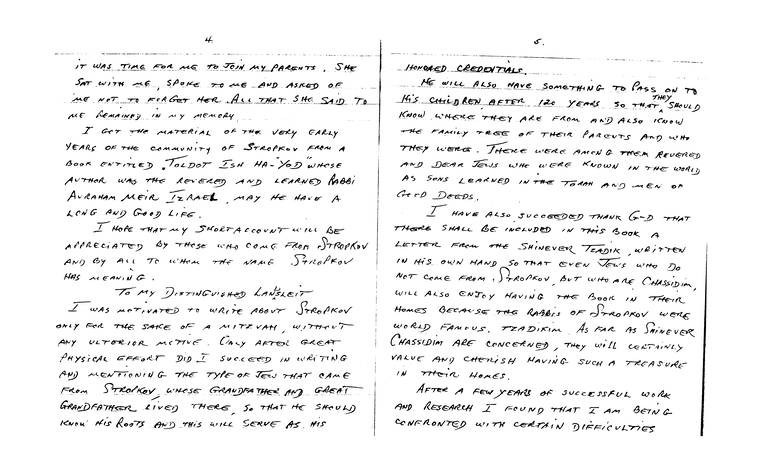 4.
IT WAS TIME FOR ME TO JOIN MY PARENTS. SHE
SAT WITH ME, SPOKE TO ME AND ASKED OF
ME NOT TO FORGET HER. ALL THAT SHE SAID TO
ME REMAINED IN MY MEMORY
I GOT THE MATERIAL OF THE VERY EARLY
YEARS OF THE COMMUNITY OF STROPKOV FROM A
BOOK ENTITLED "TOLDOT ISH HA-YOD" WHOSE
AUTHOR WAS THE REVERED AND LEARNED RABBI
AVRAHAM MEIR IZRAEL, MAY HE HAVE A
LONG AND GOOD LIFE.
I HOPE THAT MY SHORT ACCOUNT WILL BE
APPRECIATED BY THOSE WHO COME FROM STROPKOV
AND BY ALL TO WHOM THE NAME STROPKOV
HAS MEANING.
TO MY DISTINGUISHED LANSLEIT
I WAS MOTIVATED TO WRITE ABOUT STROPKOV
ONLY FOR THE SAKE OF A MITZVAH, WITHOUT
ANY ULTERIOR MOTIVE. ONLY AFTER GREAT
PHYSICAL EFFORT DID I SUCCEED IN WRITING
AND MENTIONING THE TYPE OF JEW THAT CAME
FROM STROPKOV, WHOSE GRANDFATHER AND GREAT
GRANDFATHER LIVED THERE, SO THAT HE SHOULD
KNOW HIS ROOTS AND THIS WILL SERVE AS HIS
5.
HONORED CREDENTIALS.
HE WILL ALSO HAVE SOMETHING TO PASS ON TO
HIS CHILDREN AFTER 120 YEARS SO THAT THEY SHOULD
KNOW WHERE THEY ARE FROM AND ALSO KNOW
THE FAMILY TREE OF THEIR PARENTS AND WHO
THEY WERE. THERE WERE AMONG THEM REVERED
AND DEAR JEWS WHO WERE KNOWN IN THE WORLD
AS SONS LEARNED IN THE TORAH AND MEN OF
GOOD DEEDS.
I HAVE ALSO SUCCEEDED THANK G-D THAT
THERE SHALL BE INCLUDED IN THIS BOOK A
LETTER FROM THE SHINEVER TZADIK, WRITTEN
IN HIS OWN HAND SO THAT EVEN JEWS WHO DO
NOT COME FROM STROPKOV, BUT WHO ARE CHASSIDIM,
WILL ALSO ENJOY HAVING THE BOOK IN THEIR
HOMES BECAUSE THE RABBIS OF STROPKOV WERE
WORLD FAMOUS TZADIKIM. AS FAR AS SHINEVER
CHASSIDIM ARE CONCERNED, THEY WILL CERTAINLY
VALUE AND CHERISH HAVING SUCH A TREASURE
IN THEIR HOMES.
AFTER A FEW YEARS OF SUCCESSFUL WORK
AND RESEARCH I FOUND THAT I AM BEING
CONFRONTED WITH CERTAIN DIFFICULTIES